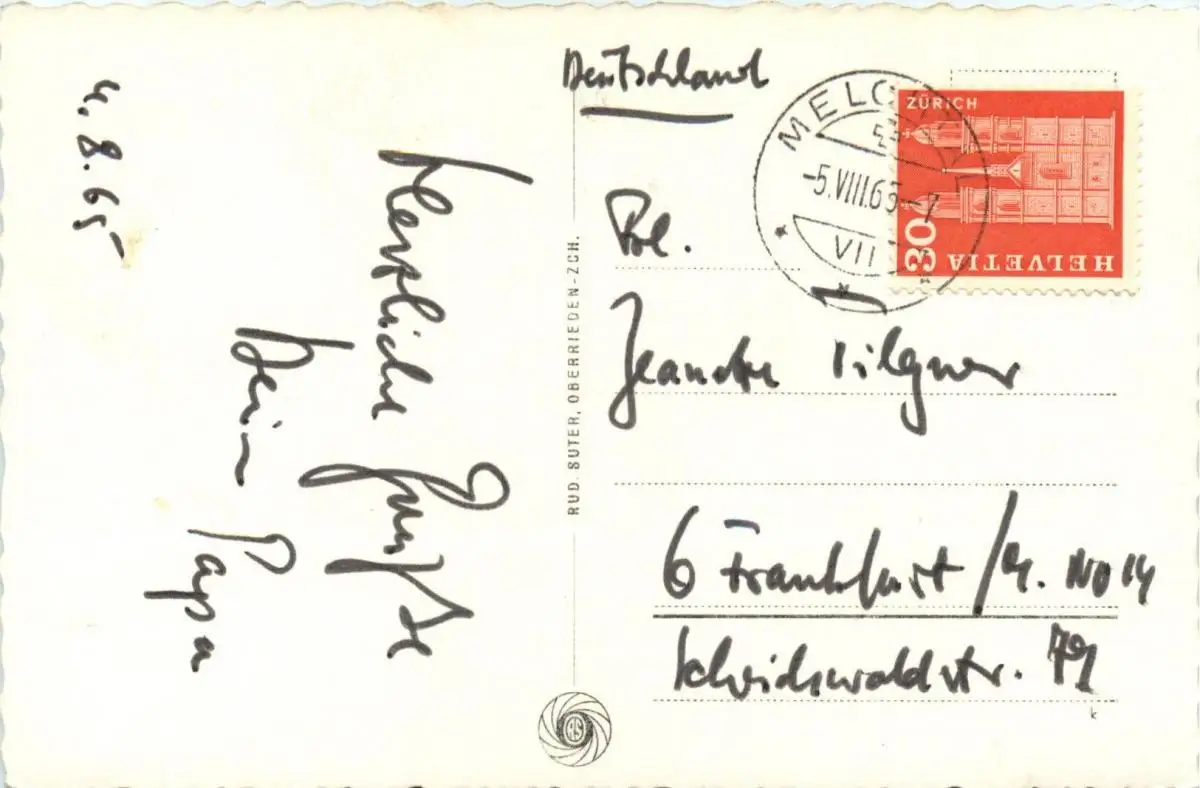 4. 8. 65
Herzliche Grüße
Dein Papa
RUD. SUTER, OBERRIEDEN-ZCH.
Deutschland
-5.VIII.65-7
VII
ZÜRICH
30
HELVETIA
Frl.
Pilgner
6 Frankfurt/M. NO 14
79
k